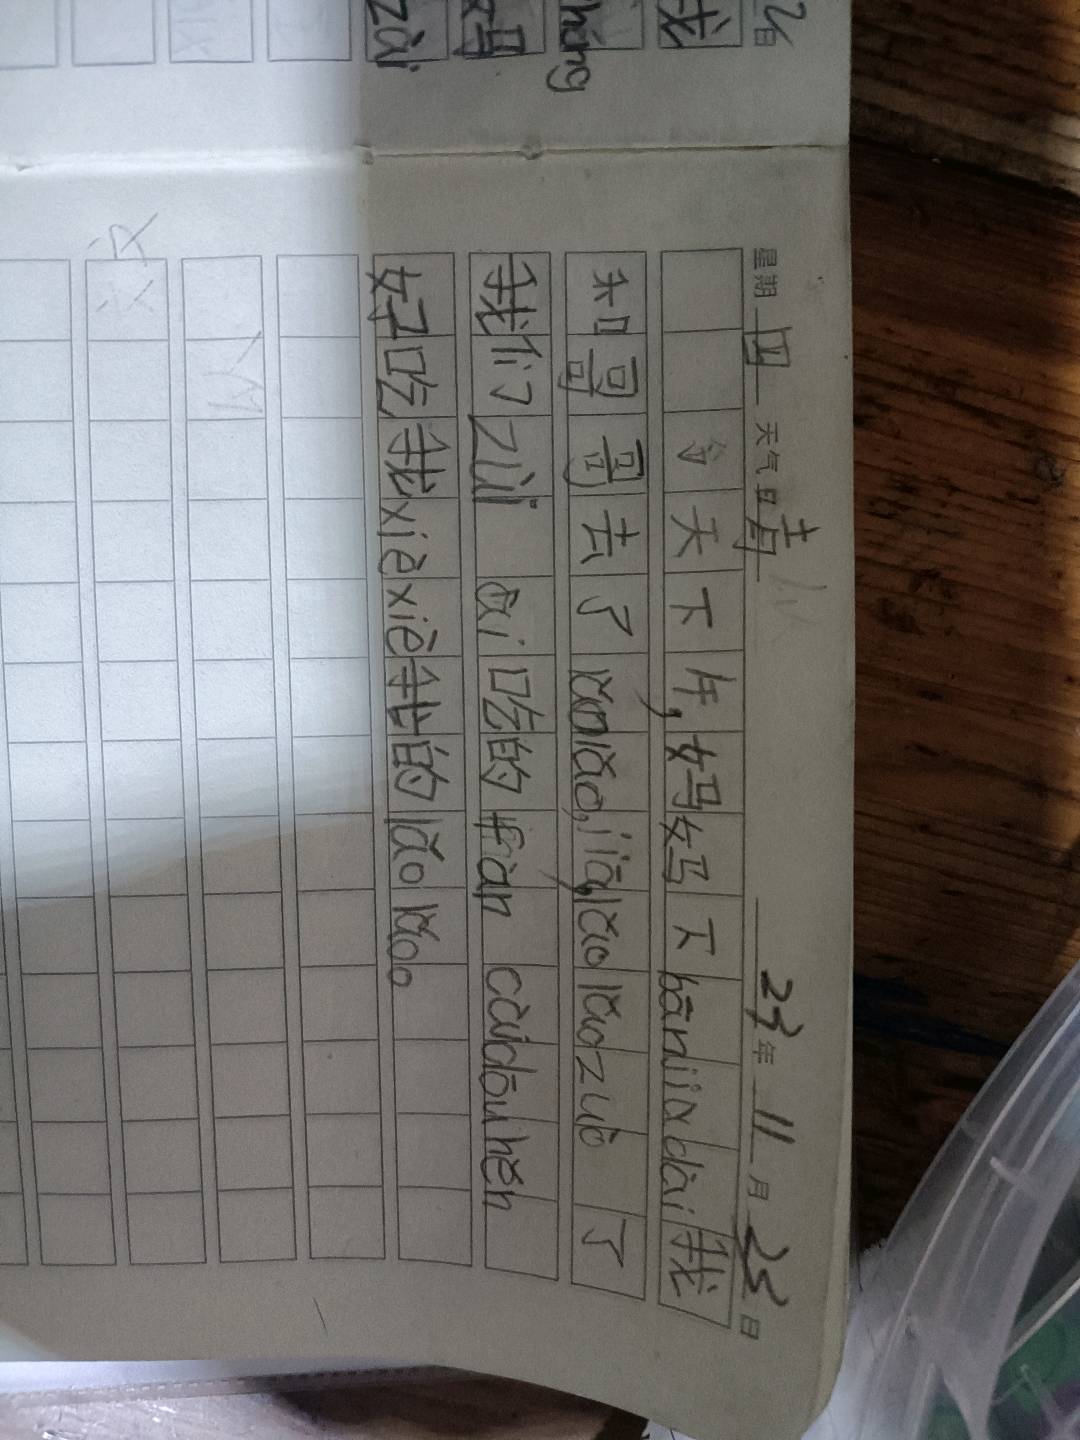 星期四 天气晴 23年11月25日
今天下午,妈妈下bānjiādài我
和哥哥去了lǎolao,jiā,lǎolaozuò了
我们zùi ài吃的fàn càidōuhěn
好吃我xièxiè我的lǎolao。